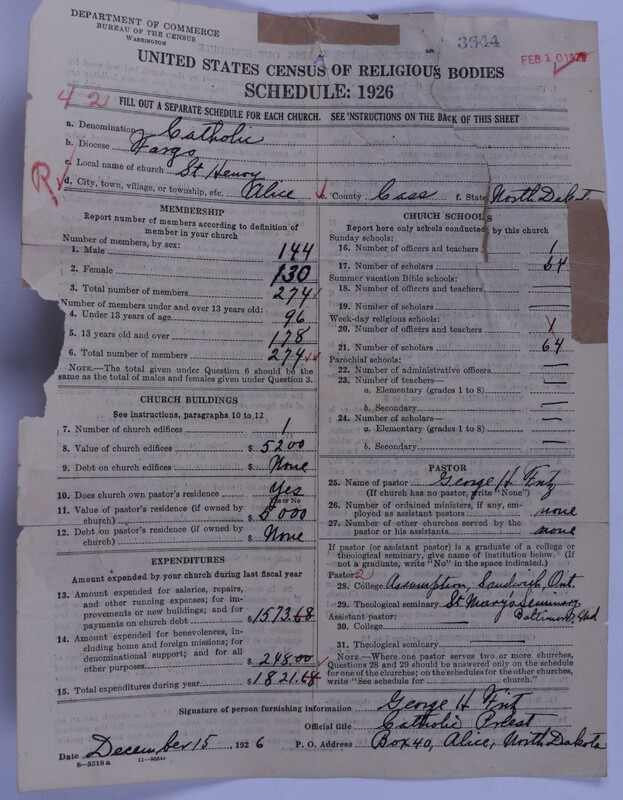 DEPARTMENT OF COMMERCE
BUREAU OF THE CENSUS
WASHINGTON
3644
FEB 10 1927
UNITED STATES CENSUS OF RELIGIOUS BODIES
SCHEDULE: 1926
42
FILL OUT A SEPARATE SCHEDULE FOR EACH CHURCH. SEE INSTRUCTIONS ON THE BACK OF THIS SHEET
a. Denomination Catholic
b. Diocese Fargo
c. Local name of church St Henry
R
d. City, town, village, or township, etc. Alice County Cass f. State North Dakota
MEMBERSHIP
Report number of members according to definition of
member in your church
Number of members, by sex:
1. Male 144
2. Female 130
3. Total number of members 274
Number of members under and over 13 years old:
4. Under 13 years of age 96
5. 13 years old and over 178
6. Total number of members 274
NOTE.—The total given under Question 6 should be the
same as the total of males and females given under Question 3.
CHURCH BUILDINGS
See instructions, paragraphs 10 to 12
7. Number of church edifices 1
8. Value of church edifices $ 5200
9. Debt on church edifices $ None
10. Does church own pastor's residence Yes
Yes or No
11. Value of pastor's residence (if owned by
church) $ 5000
12. Debt on pastor's residence (if owned by
church) $ None
EXPENDITURES
Amount expended by your church during last fiscal year
13. Amount expended for salaries, repairs,
and other running expenses; for im-
provements or new buildings; and for
payments on church debt $ 1573.68
14. Amount expended for benevolences, in-
cluding home and foreign missions; for
denominational support; and for all
other purposes $ 248.00
15. Total expenditures during year $ 1821.68
CHURCH SCHOOLS
Report here only schools conducted by this church
Sunday schools:
16. Number of officers and teachers 1
17. Number of scholars 64
Summer vacation Bible schools:
18. Number of officers and teachers —
19. Number of scholars —
Week-day religious schools:
20. Number of officers and teachers 1
21. Number of scholars 64
Parochial schools:
22. Number of administrative officers —
23. Number of teachers—
a. Elementary (grades 1 to 8) —
b. Secondary —
24. Number of scholars—
a. Elementary (grades 1 to 8) —
b. Secondary —
PASTOR
25. Name of pastor George H
(If church has no pastor, write "None")
26. Number of ordained ministers, if any, em-
ployed as assistant pastors none
27. Number of other churches served by the
pastor or his assistants none
If pastor (or assistant pastor) is a graduate of a college or
theological seminary, give name of institution below. (If
not a graduate, write "No" in the space indicated.)
Pastor: 2
28. College Assumption, Sandwich, Ont.
29. Theological seminary St Mary's Seminary
Baltimore, Md
Assistant pastor:
30. College —
31. Theological seminary —
NOTE.—Where one pastor serves two or more churches,
Questions 28 and 29 should be answered only on the schedule
for one of the churches; on the schedules for the other churches,
write "See schedule for church."
Signature of person furnishing information George H
Official title Catholic Priest
Date December 15, 1926 P. O. Address Box 40, Alice, North Dakota
8—5518a